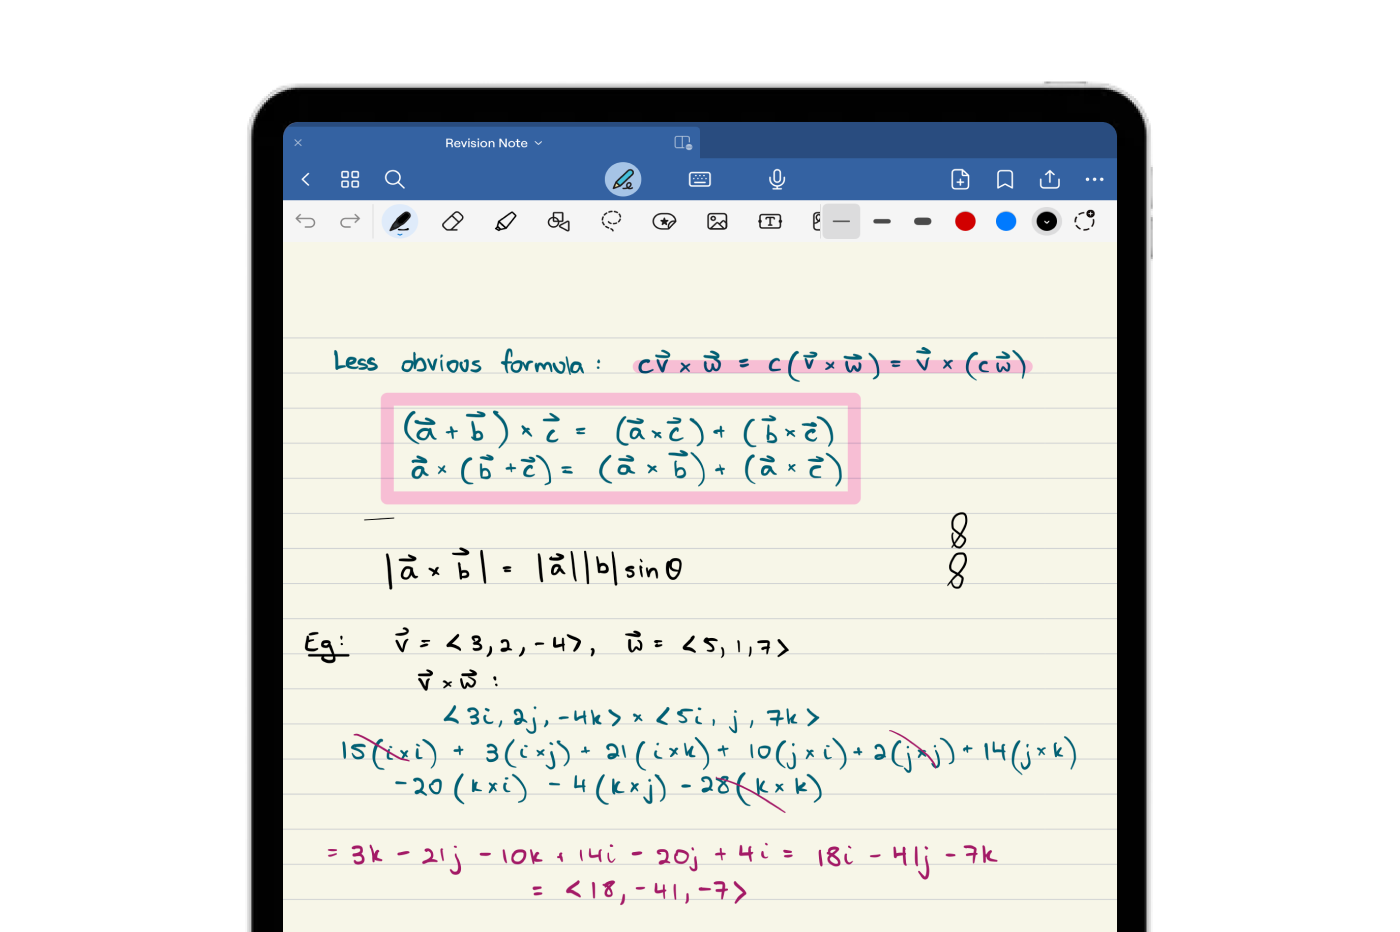 Revision Note
Less obvious formula : cv⃗ × w⃗ = c(v⃗ × w⃗) = v⃗ × (cw⃗)
(a⃗ + b⃗) × c⃗ = (a⃗ × c⃗) + (b⃗ × c⃗)
a⃗ × (b⃗ + c⃗) = (a⃗ × b⃗) + (a⃗ × c⃗)
8
|a⃗ × b⃗| = |a⃗||b|sinθ
8
Eg: v⃗ = <3, 2, -4>, w⃗ = <5, 1, 7>
v⃗ × w⃗ :
<3i, 2j, -4k> × <5i, j, 7k>
15(i×i) + 3(i×j) + 21(i×k) + 10(j×i) + 2(j×j) + 14(j×k)
-20(k×i) - 4(k×j) - 28(k×k)
= 3k - 21j - 10k + 14i - 20j + 4i = 18i - 41j - 7k
= <18, -41, -7>